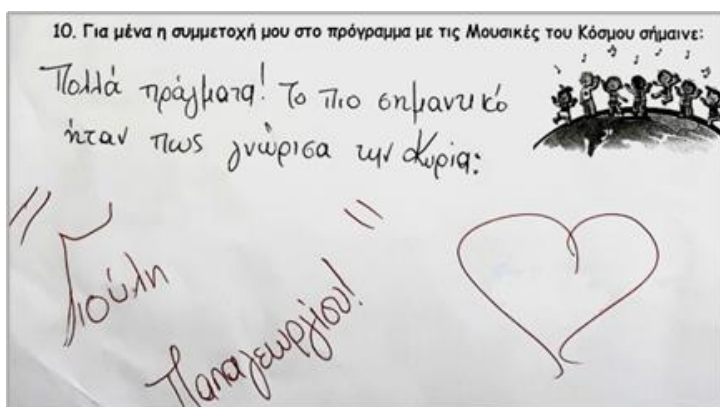 10. Για μένα η συμμετοχή μου στο πρόγραμμα με τις Μουσικές του Κόσμου σήμαινε:
Πολλά πράγματα! Το πιο σημαντικό
ήταν πως γνώρισα την Κυρία:
"Γιούλη
Παπαγεωργίου!"